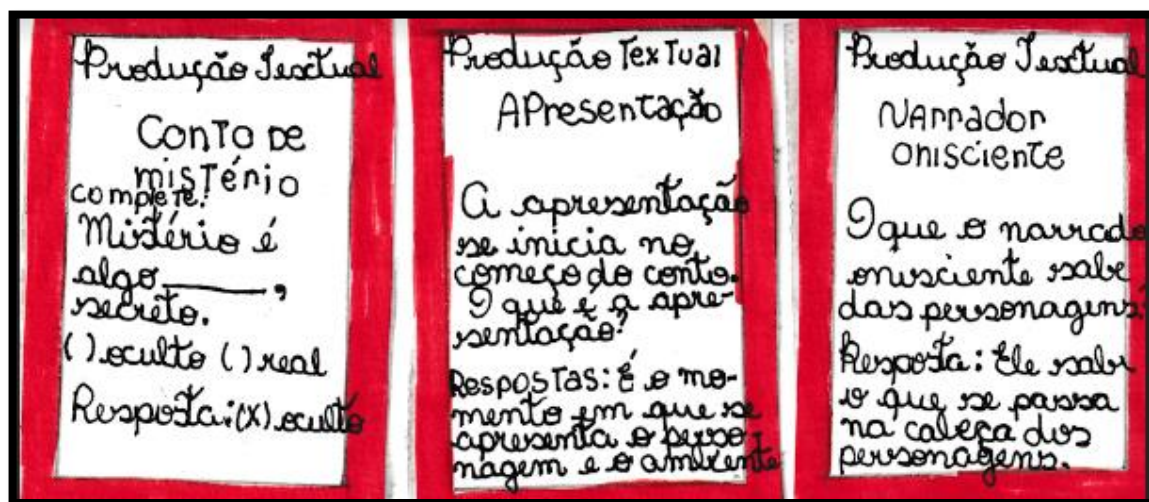 Produção Textual
Conto de
mistério
complete:
Mistério é
algo ______,
secreto.
( ) oculto ( ) real
Resposta: (X) oculto
Produção Textual
Apresentação
A apresentação
se inicia no
começo do conto.
O que é a apre-
sentação?
Respostas: É o mo-
mento em que se
apresenta o perso-
nagem e o ambiente
Produção Textual
Narrador
onisciente
O que o narrado
onisciente sabe
das personagens?
Resposta: Ele sabe
o que se passa
na cabeça dos
personagens.